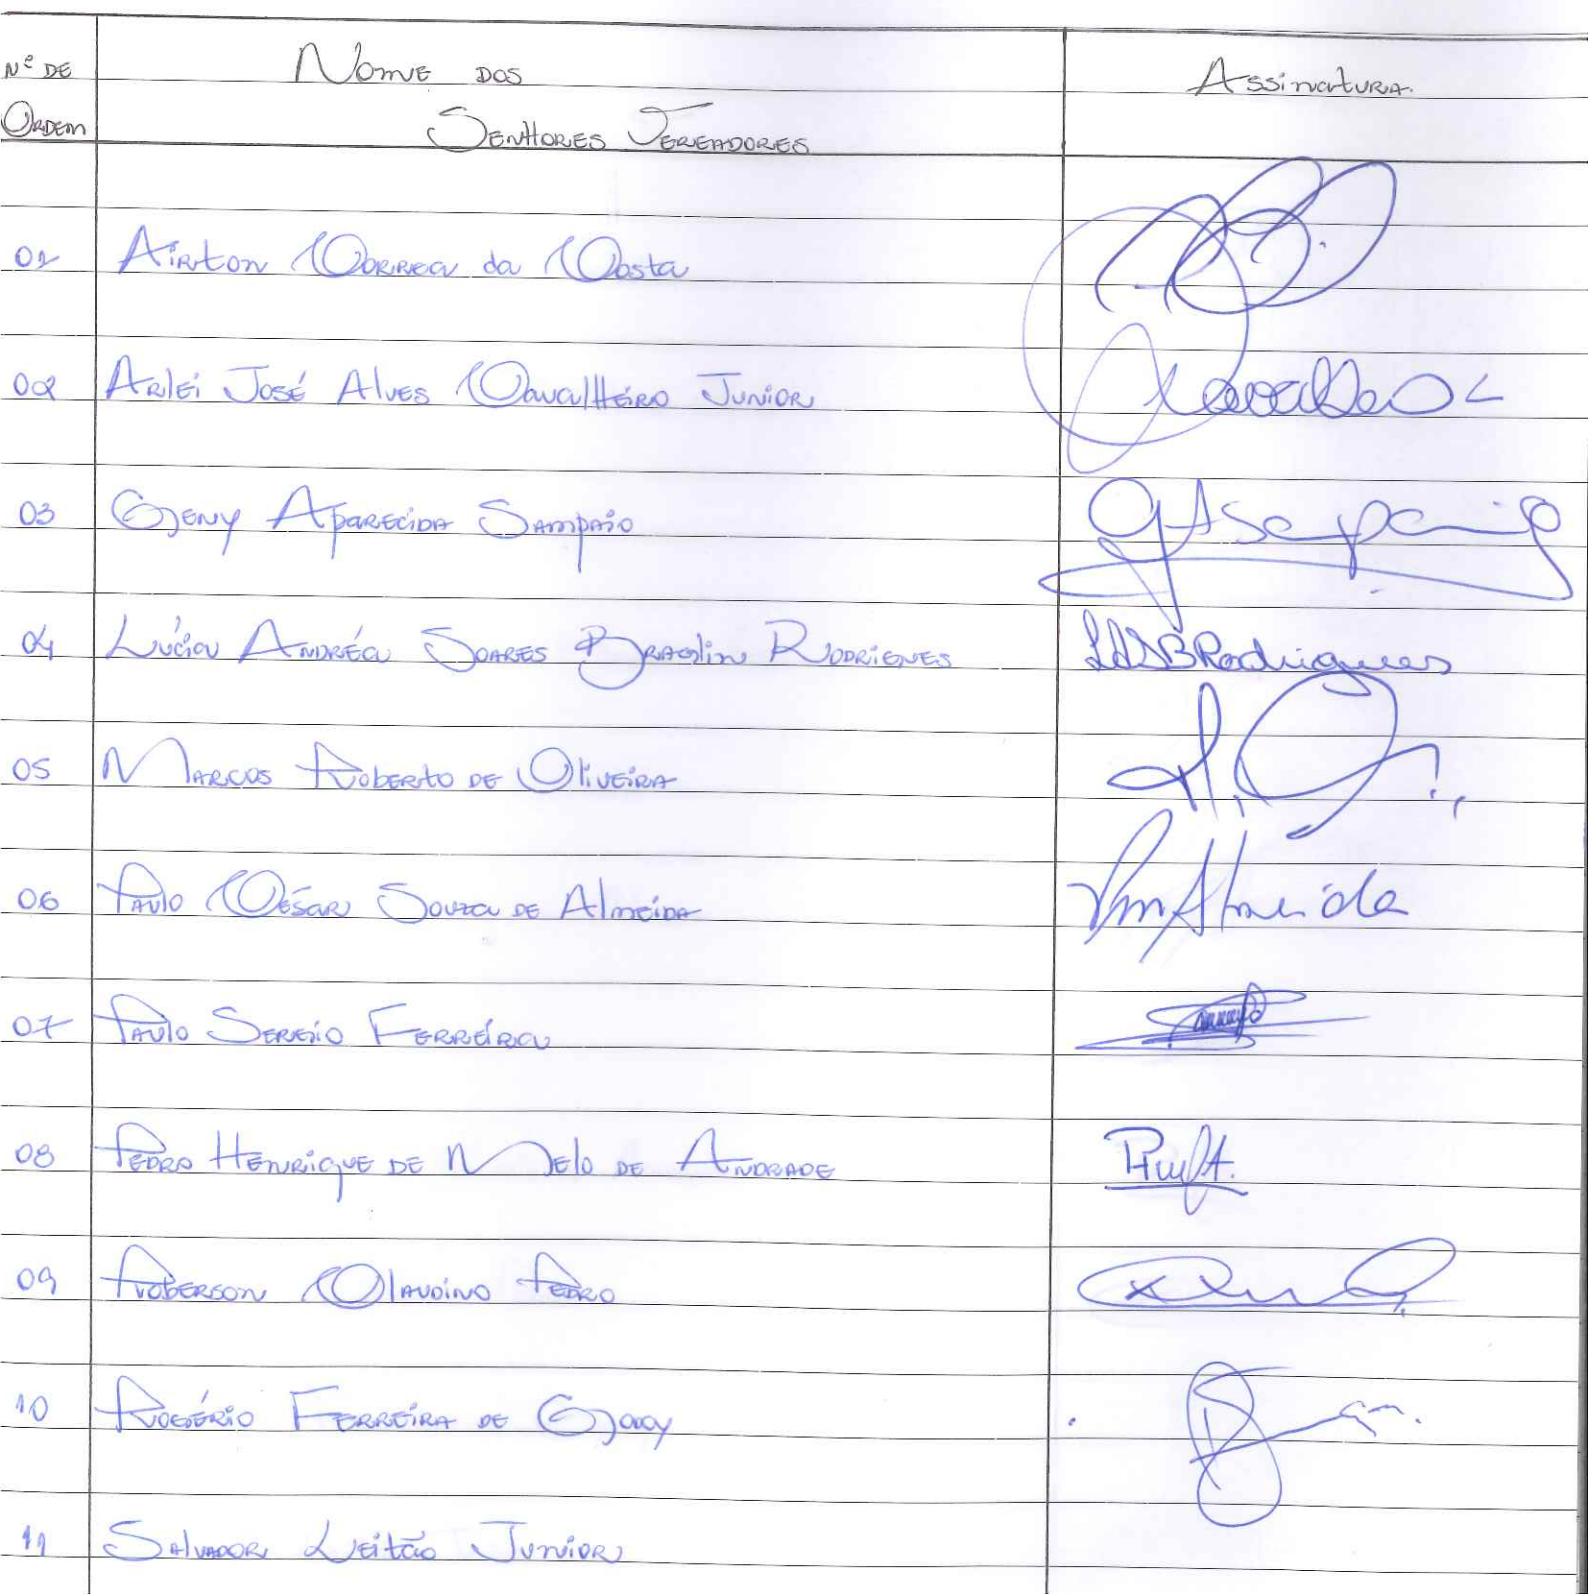 Nº DE Nome dos Assinatura
Ordem Senhores Vereadores
01 Airton Correa da Costa
02 Arlei José Alves Cavalheiro Junior
03 Geny Aparecida Sampaio GASampaio
04 Lúcia Andréa Soares Braglin Rodrigues LASBRodrigues
05 Marcos Roberto de Oliveira
06 Paulo César Souza de Almeida Almeida
07 Paulo Sergio Ferreira
08 Pedro Henrique de Melo de Andrade
09 Roberson Claudino Pedro
10 Rogério Ferreira de Godoy
11 Salvador Leitão Junior